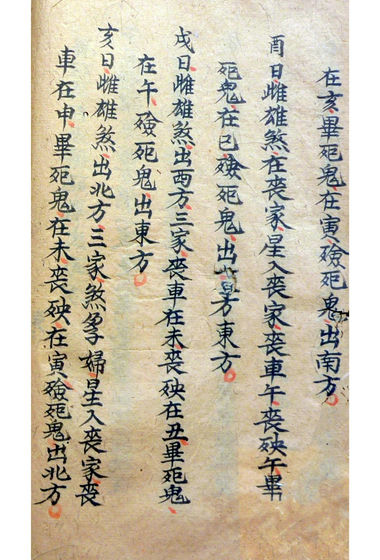 在亥畢死鬼在寅殮死鬼出南方
酉日雌雄煞在喪家星入喪家喪車午喪殃午畢
死鬼在巳殮死鬼出方東方
戌日雌雄煞出西方三家喪車在未喪殃在丑畢死鬼
在午殮死鬼出東方
亥日雌雄煞出北方三家煞孚婦星入喪家喪
車在申畢死鬼在未喪殃在寅殮死鬼出北方